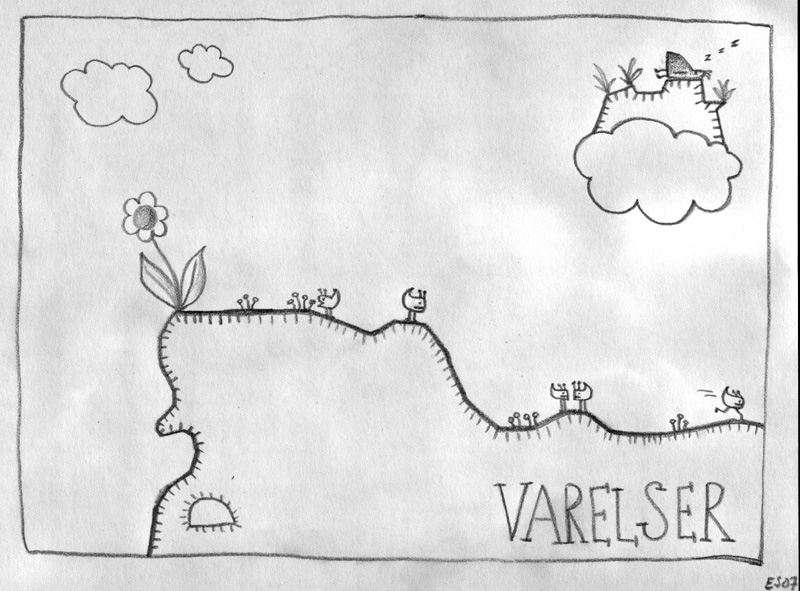 z z z
VARELSER
ESD7